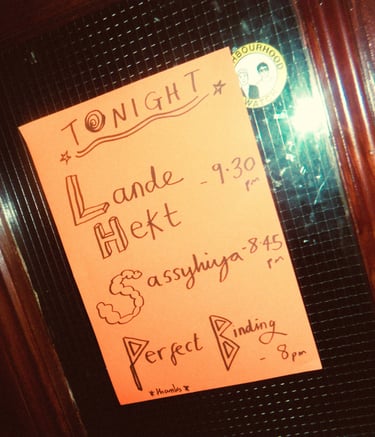 TONIGHT
Lande
Hekt - 9.30 pm
Sassyhiya - 8.45 pm
Perfect Binding - 8pm
*thanks*
NEIGHBOURHOOD
WATCH